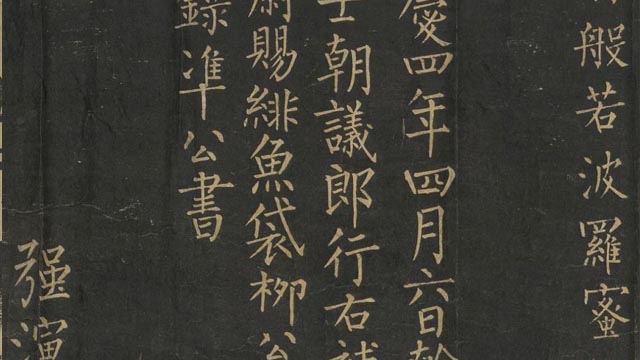 般若波羅蜜
慶四年四月六日翰
士朝議郎行右補
尉賜緋魚袋柳公
錄準公書
强演